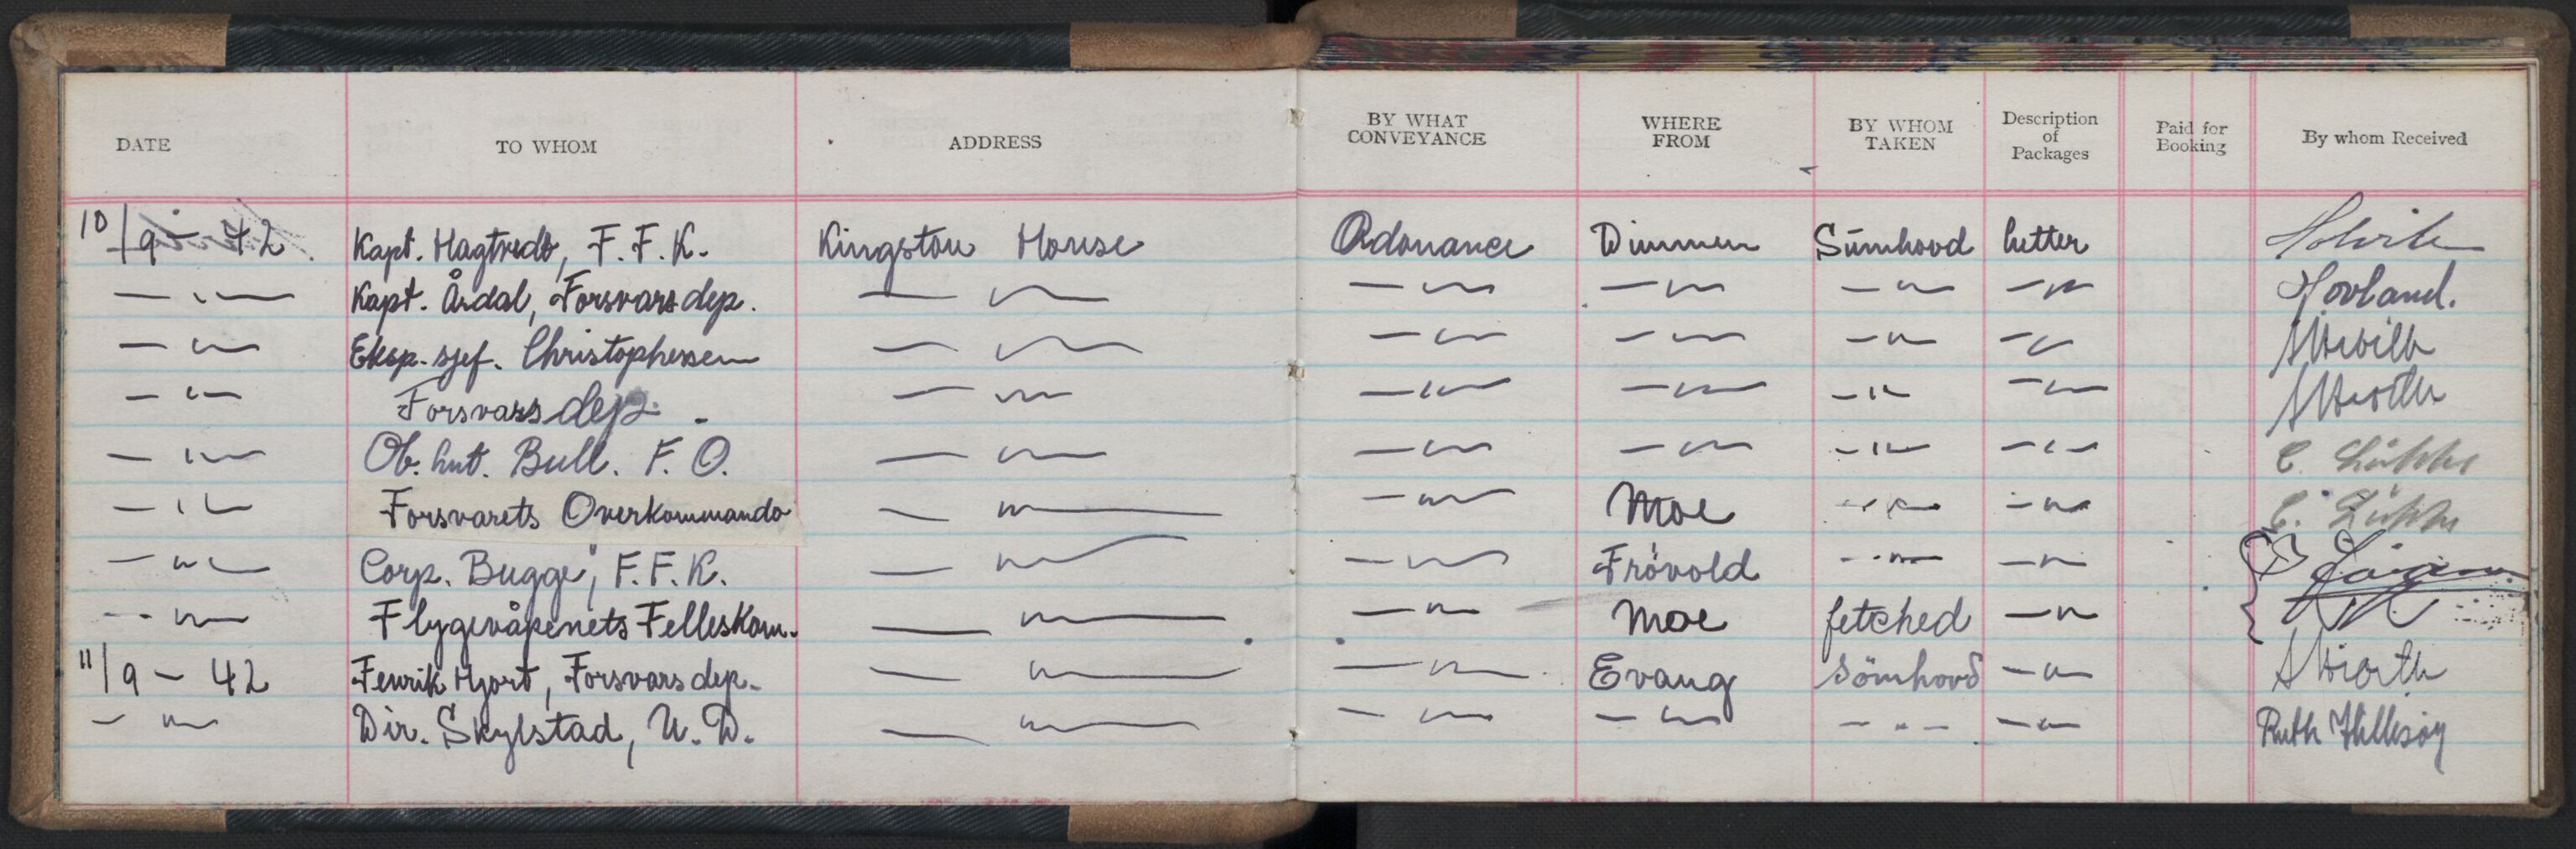 DATE TO WHOM ADDRESS BY WHAT CONVEYANCE WHERE FROM BY WHOM TAKEN Description of Packages Paid for Booking By whom Received
10/9 - 42 Kapt. Hagtvedt, F. F. K. Kingston House Ordonance Dimmen Sümhovd letter
— " — Kapt. Årdal, Forsvarsdep. — " — — " — — " — — " — — " — Hovland.
— " — Eksp. sjef. Christophersen — " — — " — — " — — " — — " —
— " — Forsvarsdep. — " — — " — — " — — " — — " —
— " — Ob. lnt. Bull. F. O. — " — — " — — " — — " — — " — C.
— " — Forsvarets Overkommando — " — — " — Moe — " — — " — C.
— " — Corp. Bugge, F. F. K. — " — — " — Frövold — " — — " —
— " — Flygevåpenets Felleskom. — " — — " — Moe fetched — " —
11/9 - 42 Fenrik Hjort, Forsvarsdep. — " — — " — Evang Sömhovd — " —
— " — Dir. Skylstad, U. D. — " — — " — — " — — " — — " — Ruth Hillesøy